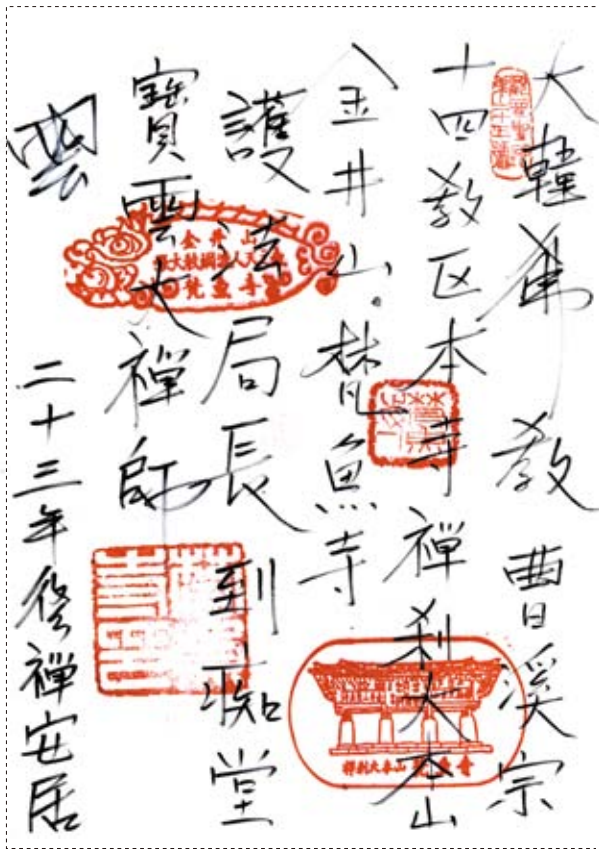 大韓佛教 曹溪宗
十四教区本寺禅刹大本山
金井山。梵魚寺
護法局長 到 堂
寶雲大禅師
雲
二十三年修禅安居
金井山
梵魚寺
禪刹大本山 梵魚寺